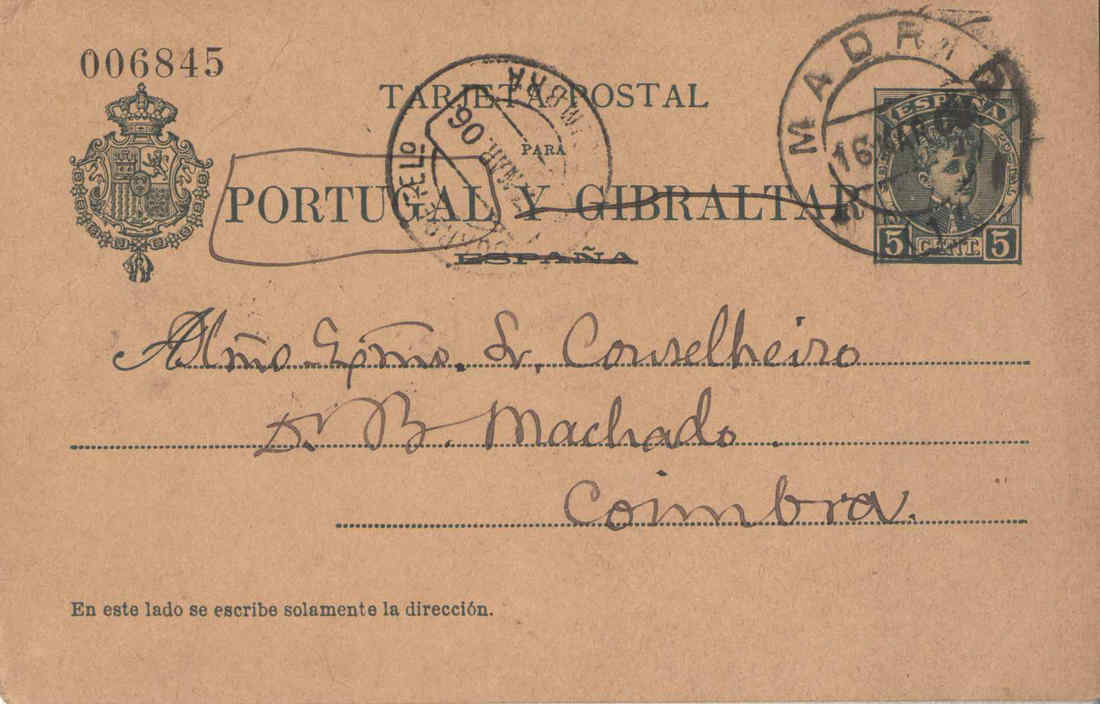 006845
TARJETA POSTAL
PARA
PORTUGAL Y GIBRALTAR
ESPAÑA
MADRID
16 MAR
ESPAÑA
5 CENT. 5
MBRA
MAR 06
Almo Exmo. Sr. Conselheiro
D. B. Machado.
Coimbra.
En este lado se escribe solamente la dirección.